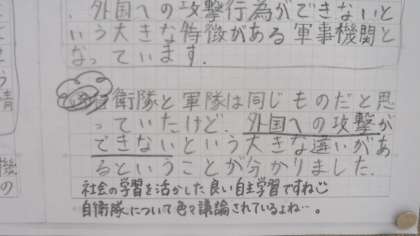 、外国への攻撃行為ができないと
いう大きな特徴がある軍事機関と
なっています。
衛隊と軍隊は同じものだと思
っていたけど、外国への攻撃が
できないという大きな違いがあ
るということが分かりました。
社会の学習を活かした良い自主学習ですね
自衛隊について色々議論されているよね…。